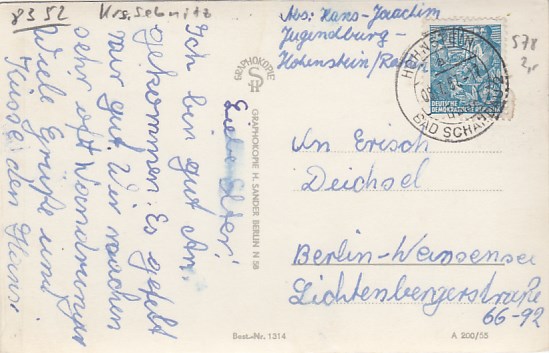 8352 Krs. Sebnitz
Liebe Eltern!
Ich bin gut An-
gekommen. Es gefelt
mir gut. Wir machen
sehr oft Wandrunge
Viele Grüße und
Küsse den Hans.
Abs: Hans-Joachim
Jugendburg-
Hohenstein/
GRAPHOKOPIE
GRAPHOKOPIE H. SANDER BERLIN N 58
DEUTSCHE
DEMOKRATISCHE
BAD SCHANDAU
578
2,-
An Erisch
Deichsel
Berlin-Weinsensee
Lichtenbergerstraße
66-92
Best.-Nr. 1314
A 200/55